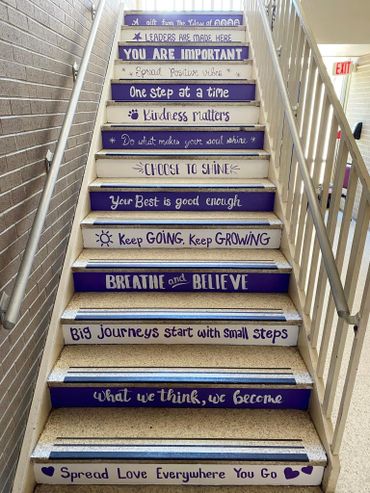 A gift from the Class of
★ LEADERS ARE MADE HERE
YOU ARE IMPORTANT
Spread Positive vibes
One Step at a time
Kindness Matters
Do what makes your soul shine
CHOOSE TO SHINE
Your Best is good enough
Keep GOING, Keep GROWING
BREATHE and BELIEVE
Big journeys start with small steps
what we think, we become
Spread Love Everywhere You Go
EXIT